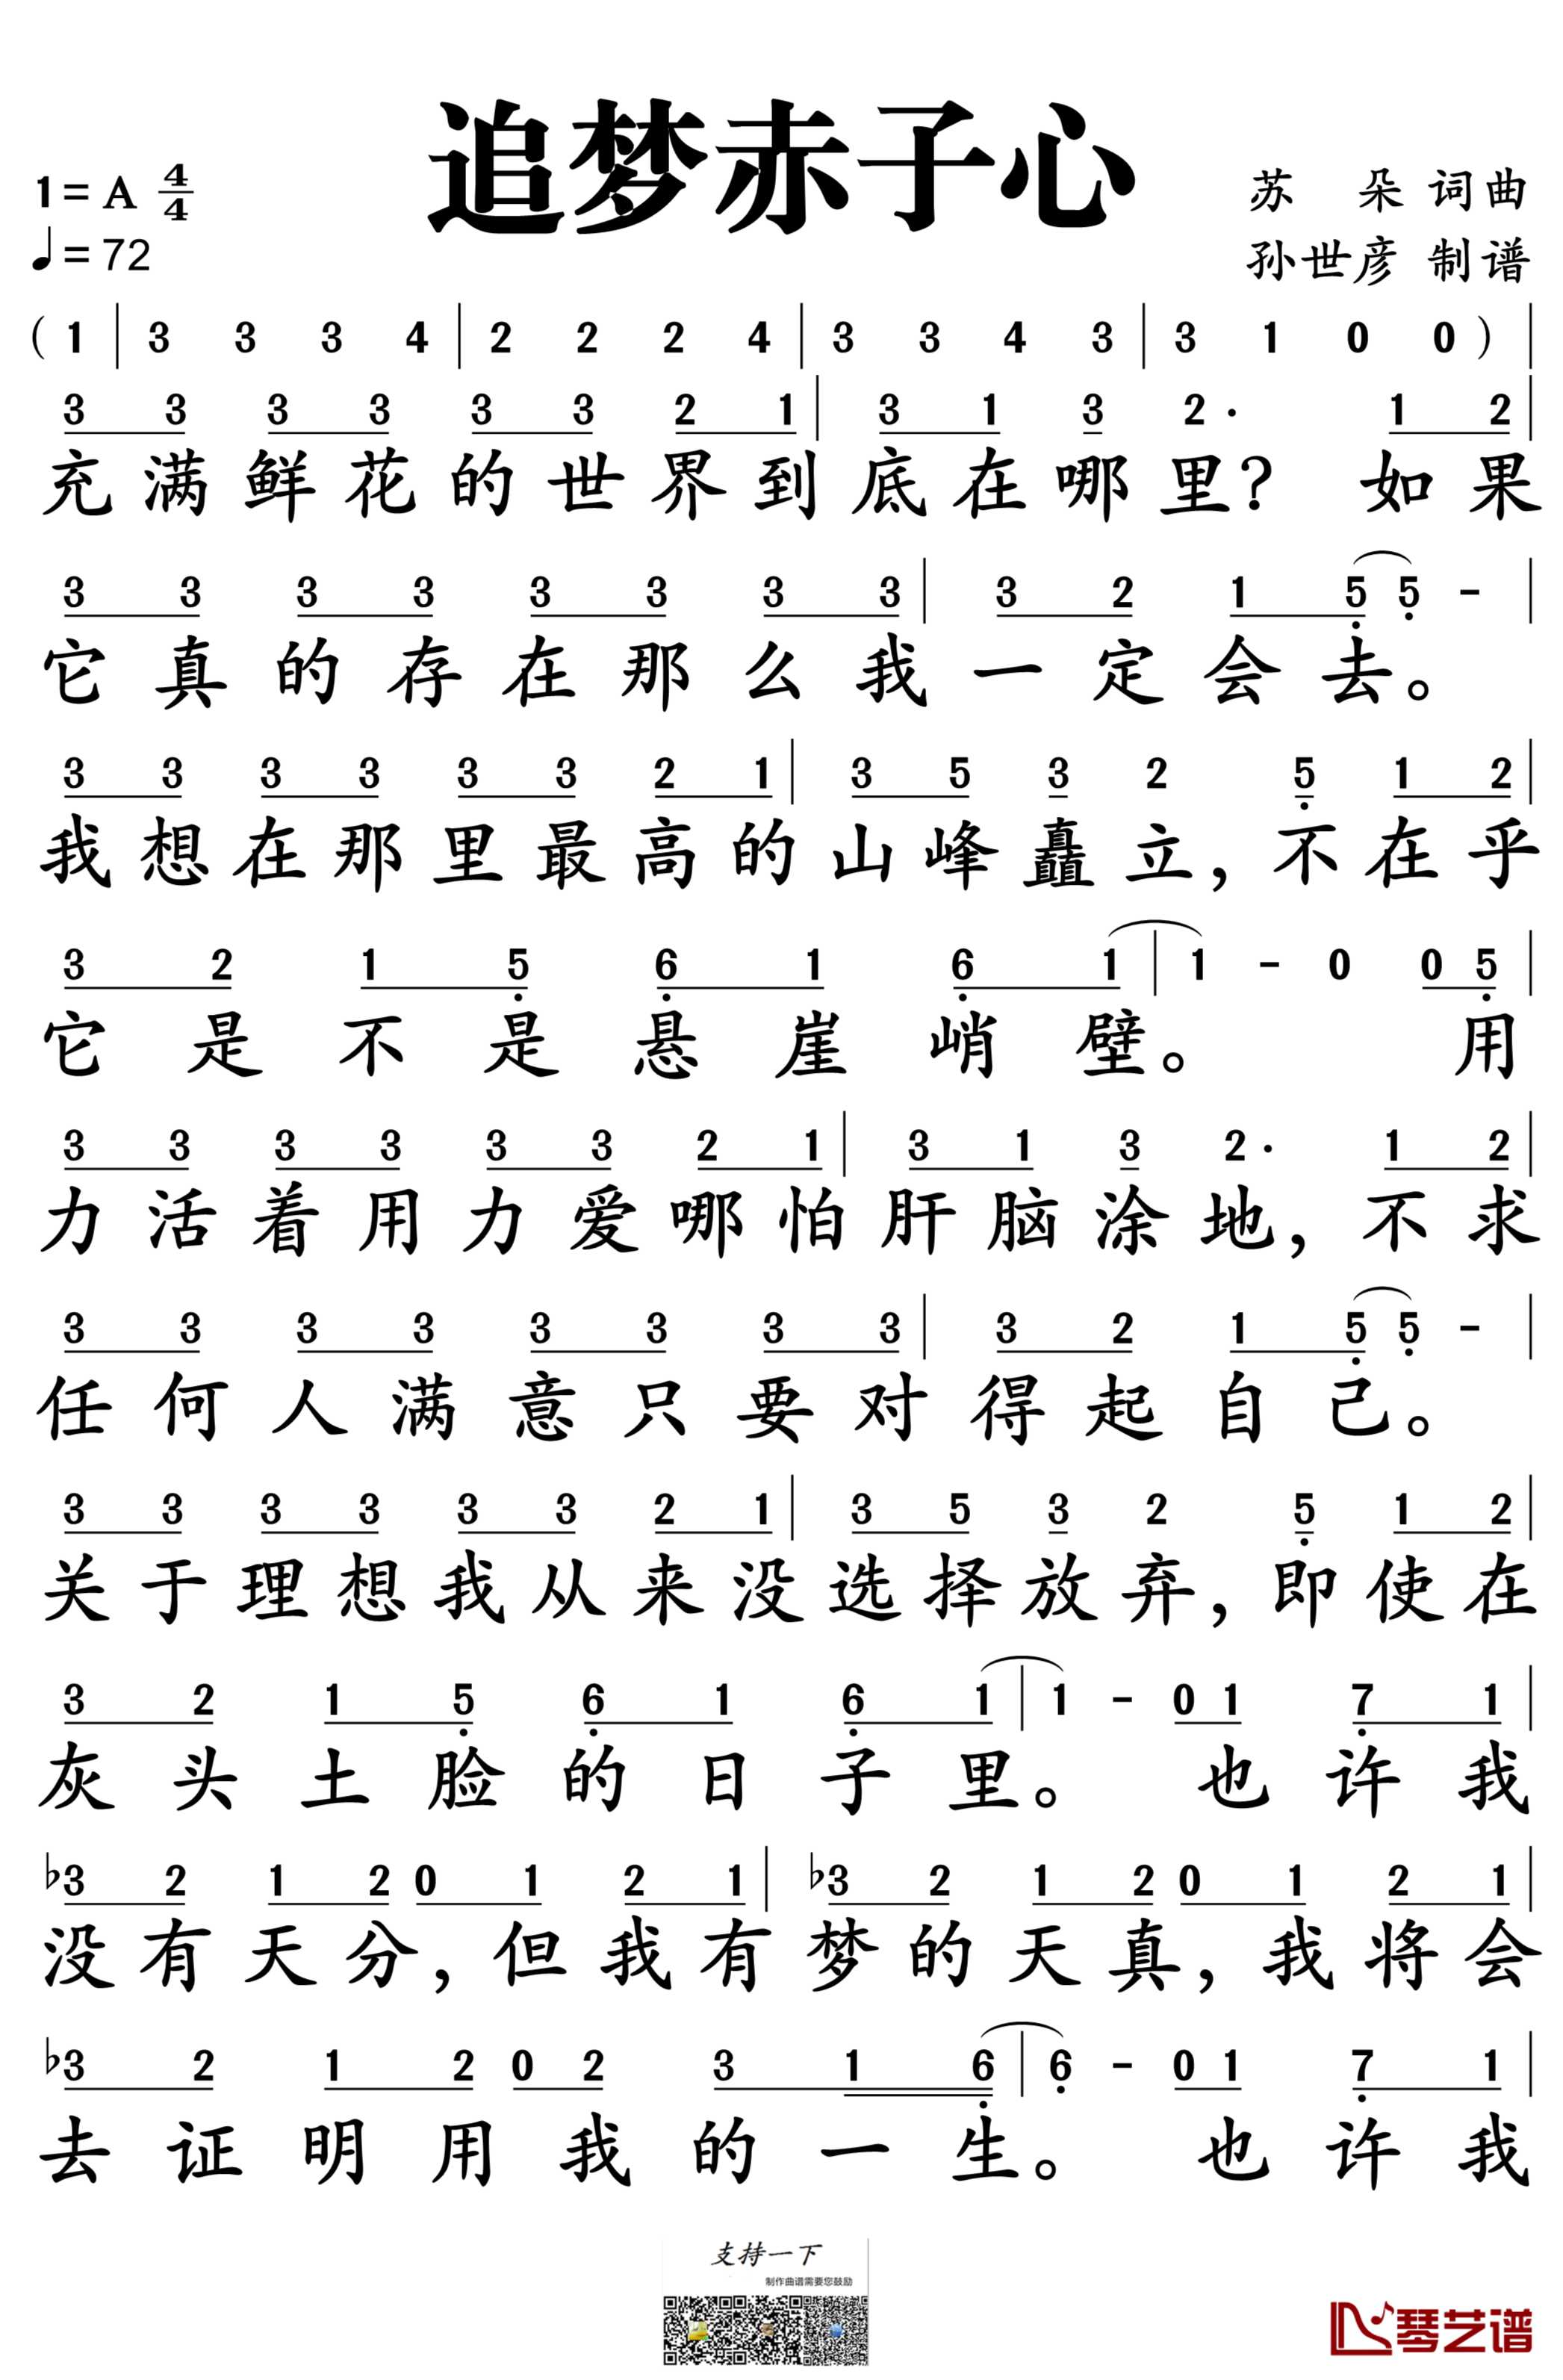 追梦赤子心
1=A 4/4
♩=72
苏 朵 词曲
孙世彦 制谱
( 1 | 3 3 3 4 | 2 2 2 4 | 3 3 4 3 | 3 1 0 0 ) |
3 3 3 3 3 3 2 1 | 3 1 3 2· 1 2 |
充满鲜花的世界到底在哪里？ 如果
3 3 3 3 3 3 3 3 | 3 2 1 5̣ 5̣ - |
它真的存在那么我一定会去。
3 3 3 3 3 3 2 1 | 3 5 3 2 5̣ 1 2 |
我想在那里最高的山峰矗立，不在乎
3 2 1 5̣ 6̣ 1 6̣ 1 | 1 - 0 0 5̣ |
它是不是悬崖峭壁。 用
3 3 3 3 3 3 2 1 | 3 1 3 2· 1 2 |
力活着用力爱哪怕肝脑涂地，不求
3 3 3 3 3 3 3 3 | 3 2 1 5̣ 5̣ - |
任何人满意只要对得起自己。
3 3 3 3 3 3 2 1 | 3 5 3 2 5̣ 1 2 |
关于理想我从来没选择放弃，即使在
3 2 1 5̣ 6̣ 1 6̣ 1 | 1 - 0 1 7̣ 1 |
灰头土脸的日子里。 也许我
♭3 2 1 2 0 1 2 1 | ♭3 2 1 2 0 1 2 1 |
没有天分，但我有梦的天真，我将会
♭3 2 1 2 0 2 3 1 6̣ | 6̣ - 0 1 7̣ 1 |
去证明用我的一生。 也许我
支持一下
制作曲谱需要您鼓励
琴艺谱